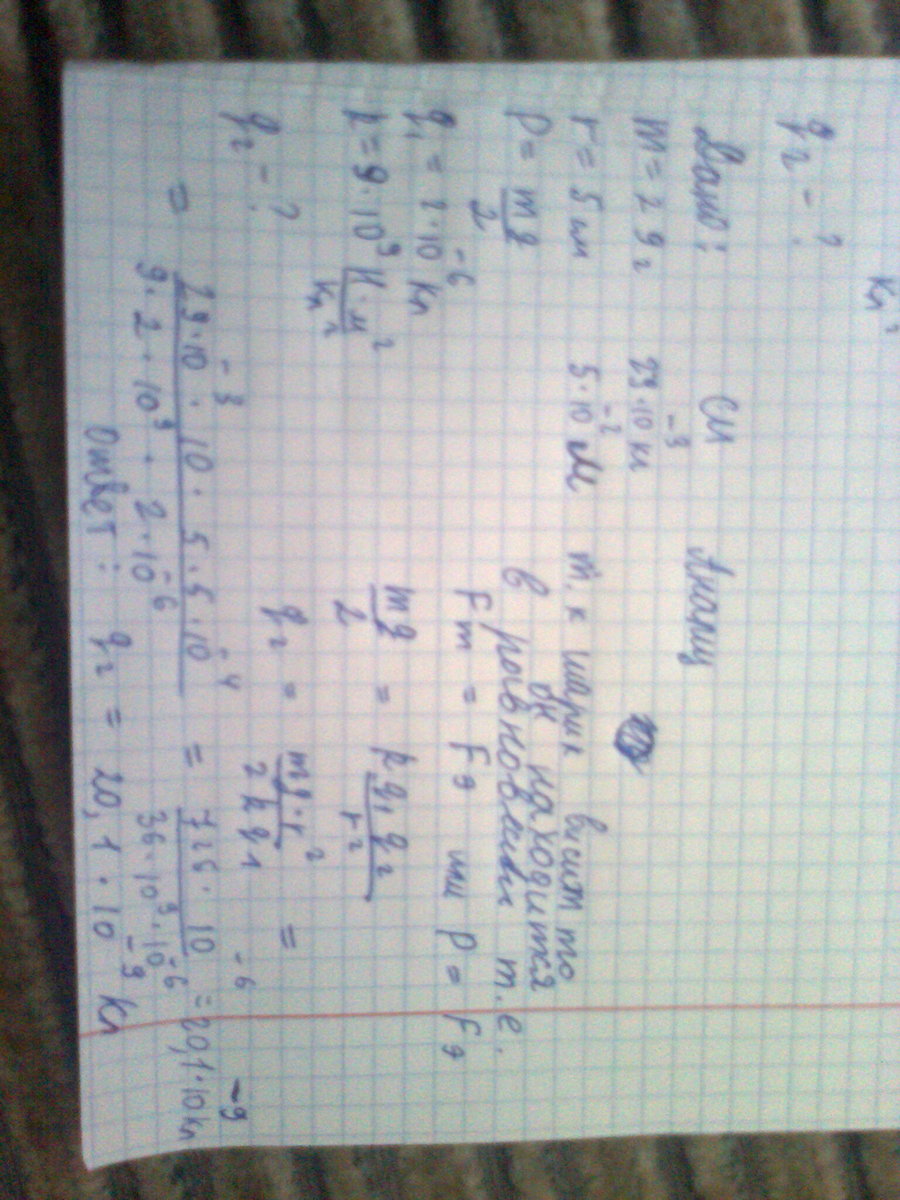 Кл²
q₂ - ?
Дано: СИ Анализ
m = 29 г 29·10⁻³ кг
r = 5 см 5·10⁻² м т.к шарик висит то
он находится
P = mg/2 в равновесии т.е.
q₁ = 2·10⁻⁶ Кл Fт = Fэ или P = Fэ
k = 9·10⁹ Н·м²/Кл² mg/2 = k q₁q₂/r²
q₂ - ? q₂ = mg·r²/2kq₁ =
= 29·10⁻³·10·5·5·10⁻⁴/9·2·10⁹·2·10⁻⁶ = 725·10⁻⁶/36·10⁹·10⁻⁶ = 20,1·10⁻⁹ Кл
Ответ: q₂ = 20,1·10⁻⁹ Кл